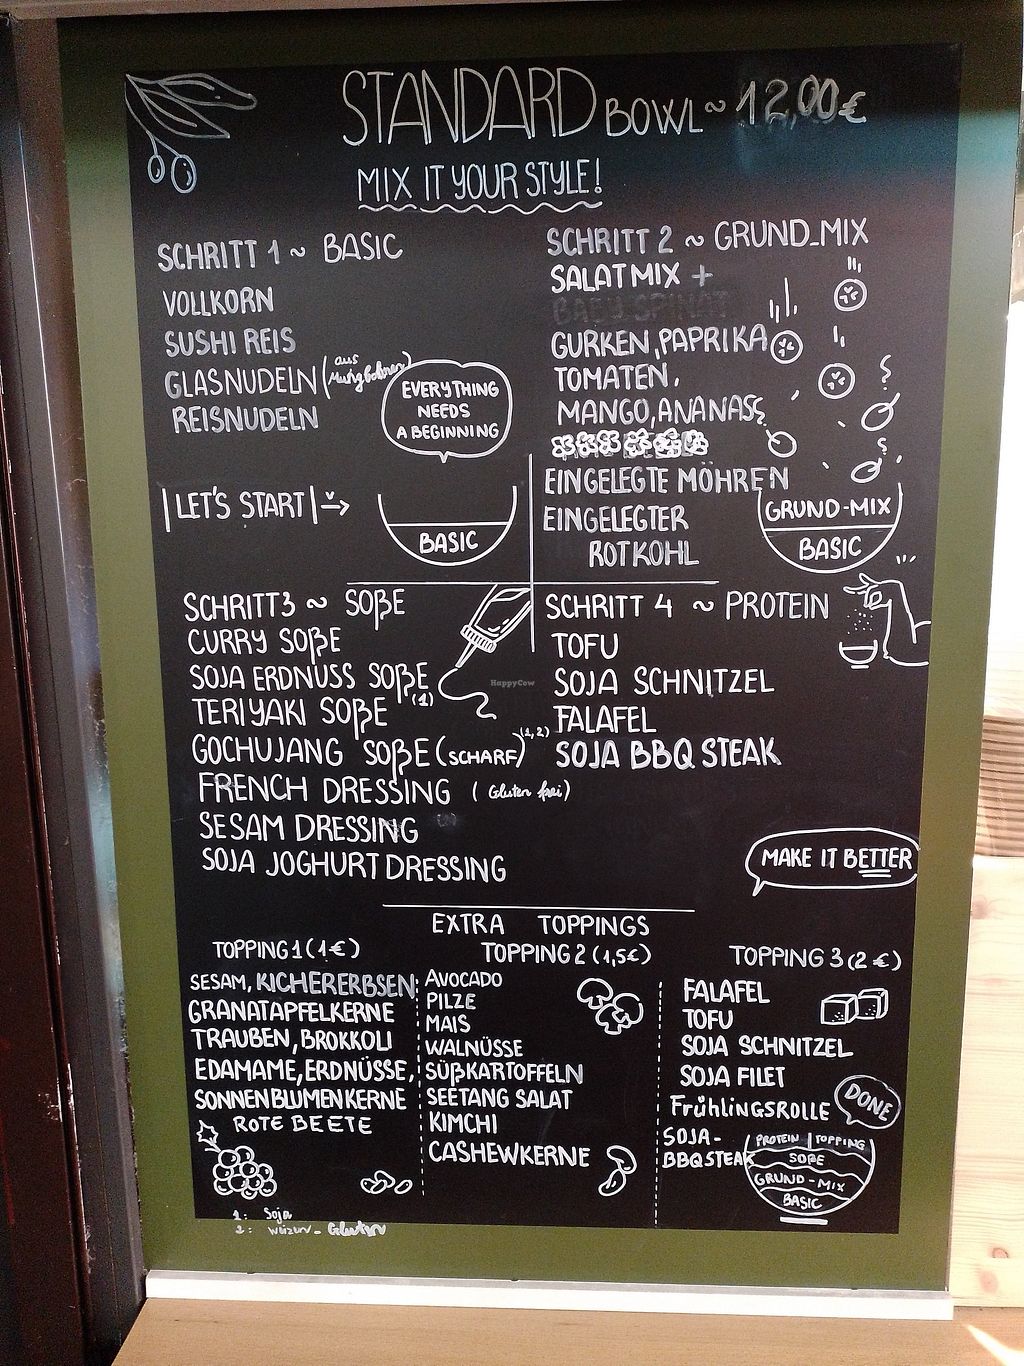 STANDARD BOWL ~ 12,00€
MIX IT YOUR STYLE!
SCHRITT 1 ~ BASIC
VOLLKORN
SUSHI REIS
GLASNUDELN (aus Mungbohnen)
REISNUDELN
EVERYTHING
NEEDS
A BEGINNING
|LET'S START| →
BASIC
SCHRITT 2 ~ GRUND_MIX
SALATMIX +
BABY SPINAT
GURKEN, PAPRIKA
TOMATEN,
MANGO, ANANAS
EINGELEGTE MÖHREN
EINGELEGTER
ROTKOHL
GRUND-MIX
BASIC
SCHRITT 3 ~ SOßE
CURRY SOßE
SOJA ERDNUSS SOßE
TERIYAKI SOßE (1)
GOCHUJANG SOßE (SCHARF) (1,2)
FRENCH DRESSING (Gluten frei)
SESAM DRESSING
SOJA JOGHURT DRESSING
SCHRITT 4 ~ PROTEIN
TOFU
SOJA SCHNITZEL
FALAFEL
SOJA BBQ STEAK
HappyCow
MAKE IT BETTER
EXTRA TOPPINGS
TOPPING 1 (1€)
SESAM, KICHERERBSEN
GRANATAPFELKERNE
TRAUBEN, BROKKOLI
EDAMAME, ERDNÜSSE,
SONNENBLUMENKERNE
ROTE BEETE
TOPPING 2 (1,5€)
AVOCADO
PILZE
MAIS
WALNÜSSE
SÜßKARTOFFELN
SEETANG SALAT
KIMCHI
CASHEWKERNE
TOPPING 3 (2€)
FALAFEL
TOFU
SOJA SCHNITZEL
SOJA FILET
FRÜHLINGSROLLE
SOJA-
BBQ STEAK
DONE
PROTEIN | TOPPING
SOßE
GRUND-MIX
BASIC
1: Soja
2: Weizen - Gluten